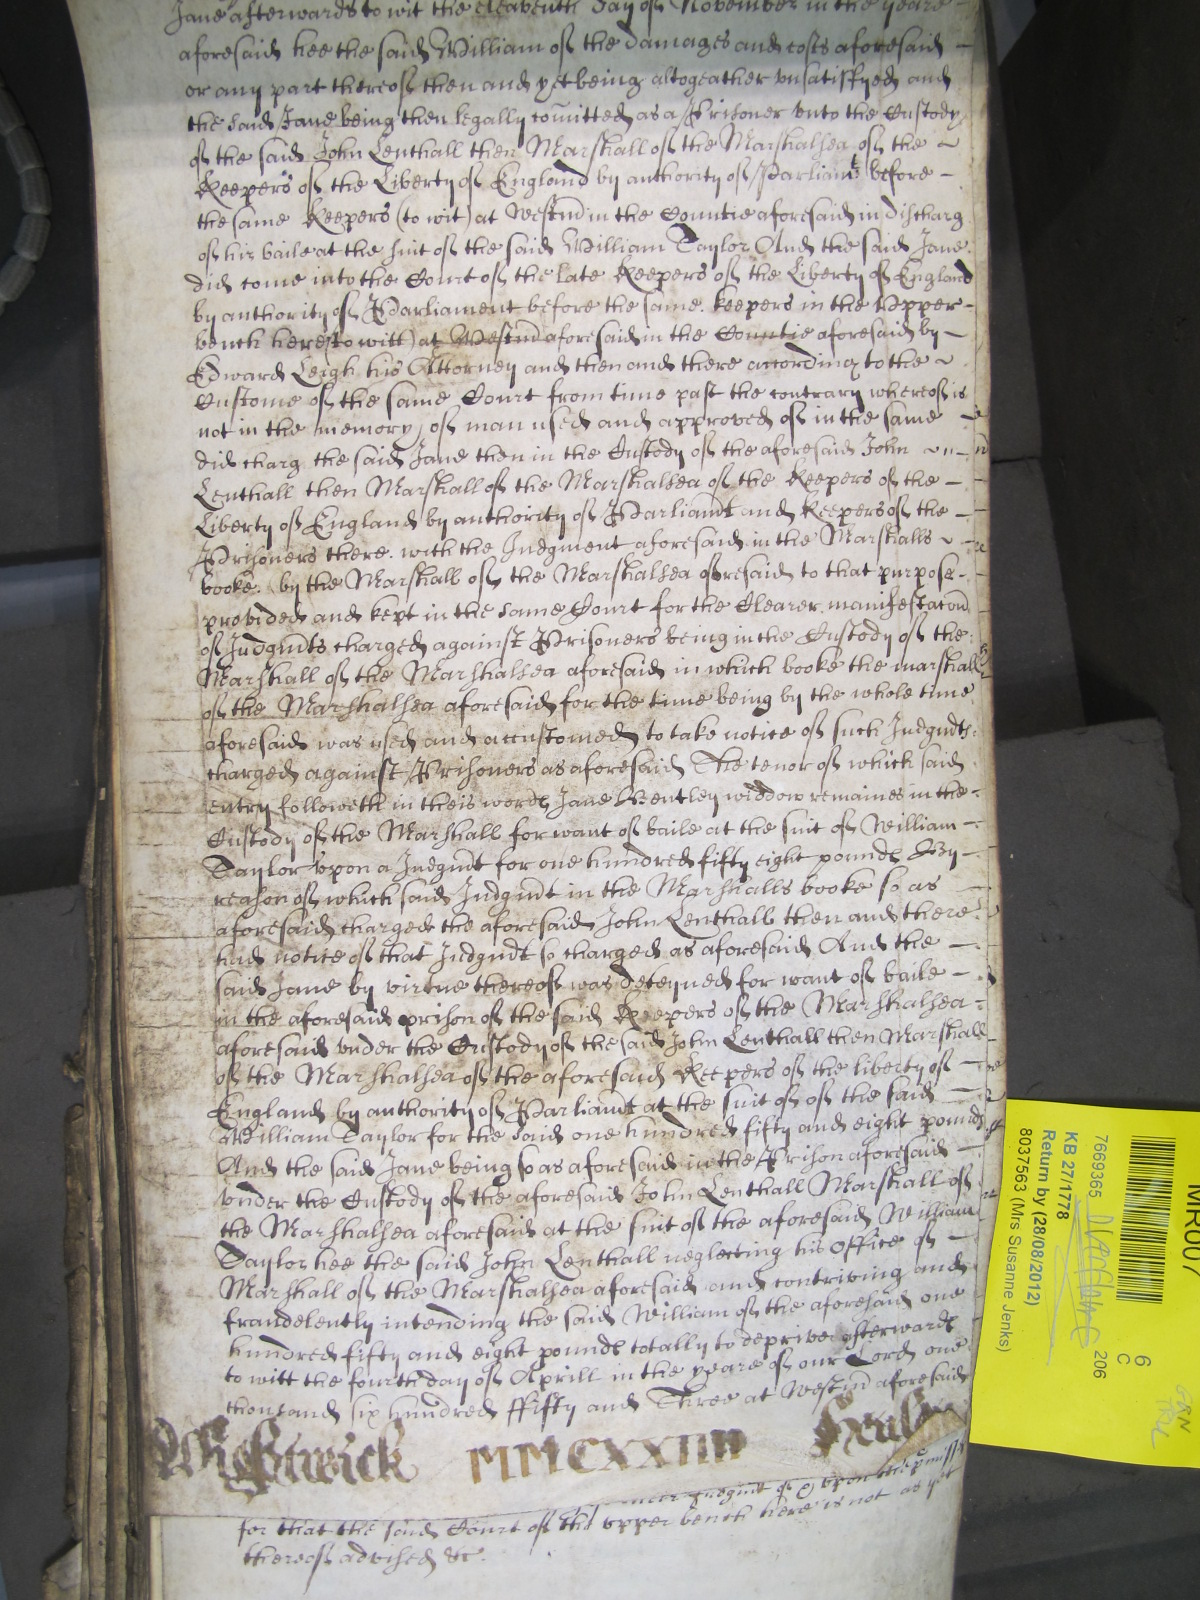 Jane afterwards to wit the eleaventh day of November in the yeare
aforesaid hee the said William of the damages and costs aforesaid
or any part thereof then and yet being altogeather vnsatisfyed and
the said Jane being then legally comitted as a Prisoner vnto the Custody
of the said John Lenthall then Marshall of the Marshalsea of the
Keepers of the Liberty of England by authority of Parliamt before
the same Keepers (to wit) at Westmr in the Countie aforesaid in discharg
of hir baile at the suit of the said William Taylor And the said Jane
did come into the Court of the late Keepers of the Liberty of England
by authority of Parliament before the same keepers in the Vpper
bench here (to witt) at Westmr aforesaid in the Countie aforesaid by
Edward Leigh his Attorney and then and there according to the
Custome of the same Court from time past the contrary whereof is
not in the memory of man used and approved of in the same
did charg the said Jane then in the Custody of the aforesaid John
Lenthall then Marshall of the Marshalsea of the Keepers of the
Liberty of England by authority of Parliamt and Keepers of the
Prisoners there with the Judgment aforesaid in the Marshalls
booke by the Marshall of the Marshalsea aforesaid to that purpose
provided and kept in the same Court for the Clearer manifestacon
of Judgmts charged against Prisoners being in the Custody of the
Marshall of the Marshalsea aforesaid in which booke the marshall
of the Marshalsea aforesaid for the time being by the whole time
aforesaid was used and accustomed to take notice of such Judgmts
charged against Prisoners as aforesaid The tenor of which said
entry followeth in theis words Jane Bentley widdow remaines in the
Custody of the Marshall for want of baile at the suit of William
Taylor vpon a Judgmt for one hundred fifty eight pounds By
reason of which said Judgmt in the Marshalls booke so as
aforesaid charged the aforesaid John Lenthall then and there
had notice of that Judgmt so charged as aforesaid And the
said Jane by virtue thereof was deteyned for want of baile
in the aforesaid prison of the said Keepers of the Marshalsea
aforesaid vnder the Custody of the said John Lenthall then Marshall
of the Marshalsea of the aforesaid Keepers of the liberty of
England by authority of Parliamt at the suit of of the said
William Taylor for the said one hundred fifty and eight pounds
And the said Jane being so as aforesaid in the Prison aforesaid
vnder the Custody of the aforesaid John Lenthall Marshall of
the Marshalsea aforesaid at the suit of the aforesaid William
Taylor hee the said John Lenthall neglecting his Office of
Marshall of the Marshalsea aforesaid and contriving and
fraudelently intending the said William of the aforesaid one
hundred fifty and eight pounds totally to deprive afterwards
to witt the fourth day of Aprill in the yeare of our Lord one
thousand six hundred ffifty and Three at Westmr aforesaid
MMCXXIIII
Judgmt of &c vpon the pmisses
for that the said Court of the vpper bench here is not as yet
thereof advised &c.
MR007
7669365
KB 27/1778
Return by (28/08/2012)
8037563 (Mrs Susanne Jenks)
206
6
C